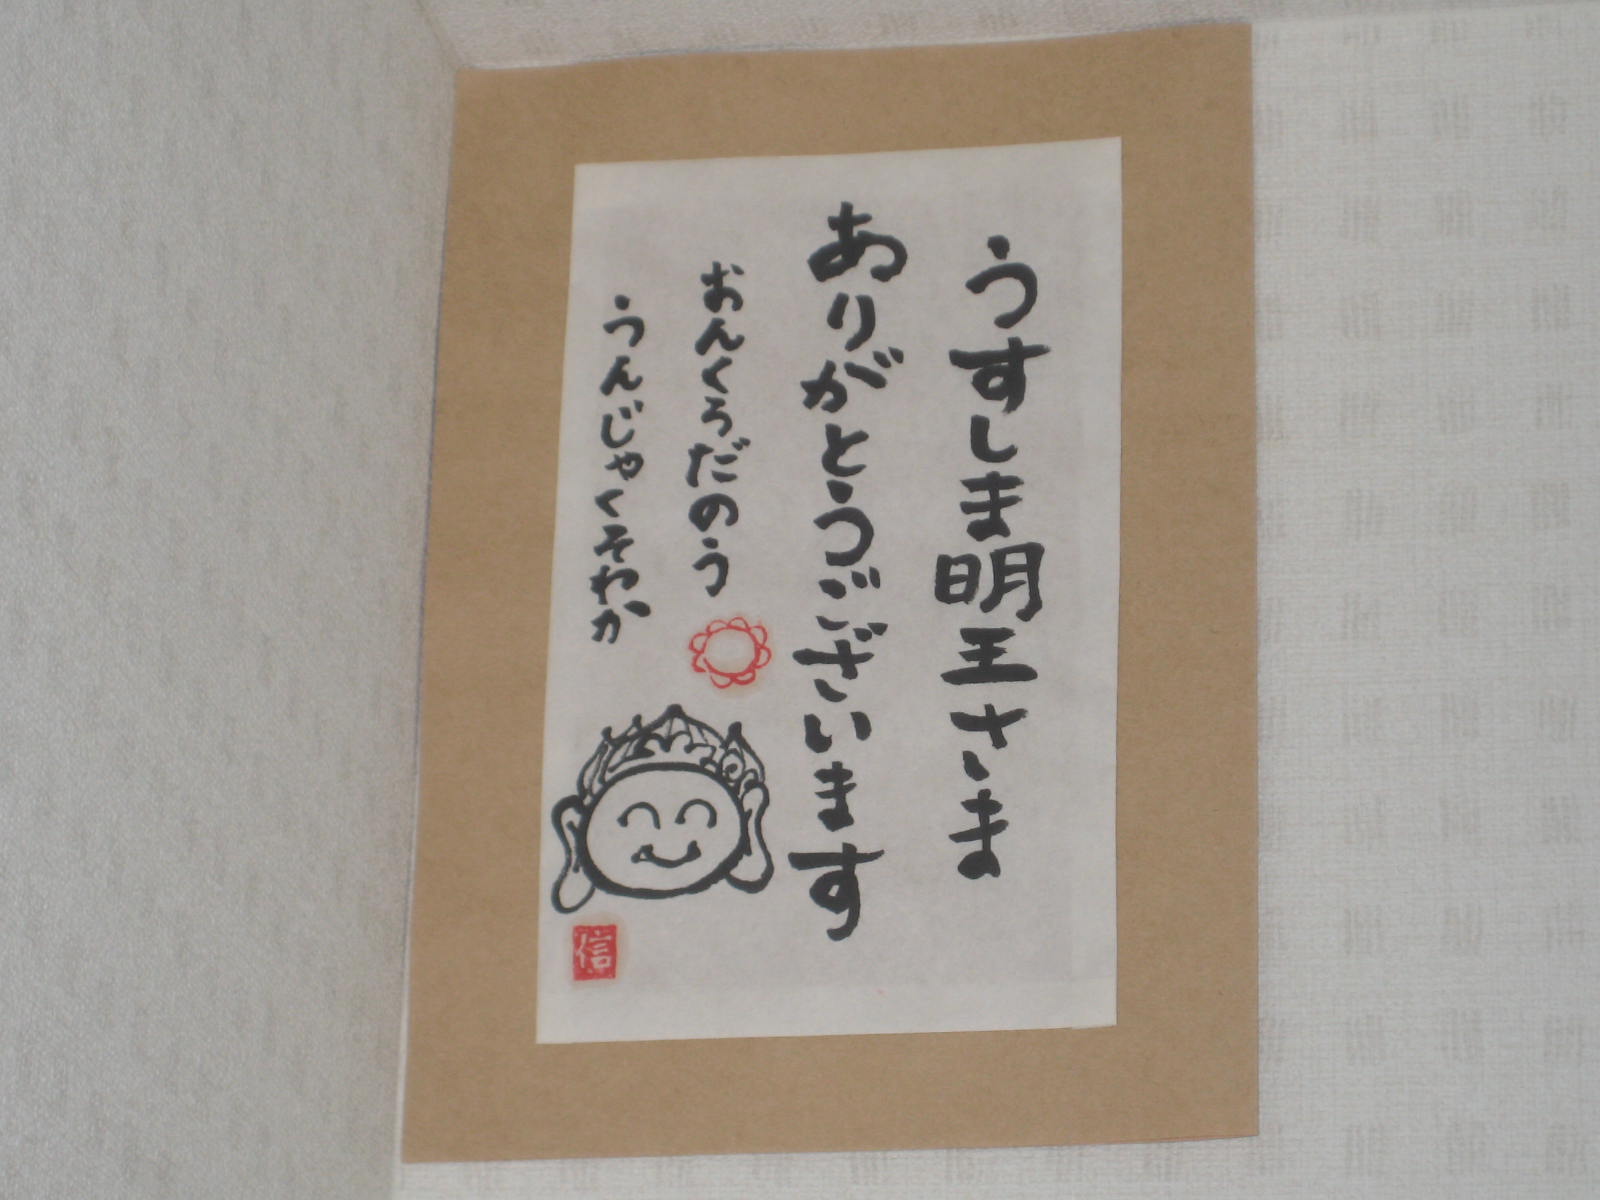 うすしま明王さま
ありがとうございます
おんくろだのう
うんじゃくそわか
信